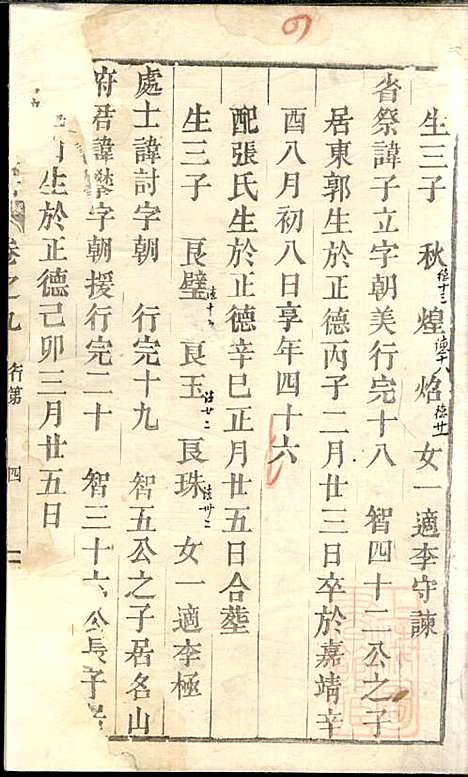 生三子 秋德十三 煌德十八 焰德廿 女一適李守諫
省祭諱子立字朝美行完十八 智四十二公之子
居東郭生於正德丙子二月廿三日卒於嘉靖辛
酉八月初八日享年四十六
配張氏生於正德辛巳正月廿五日合塟
生三子 良璧 良玉 良珠 女一適李極
處士諱討字朝 行完十九 智五公之子居名山
府君諱攀字朝援行完二十 智三十六公長子
生於正德己卯三月廿五日
卷之九 行第 四